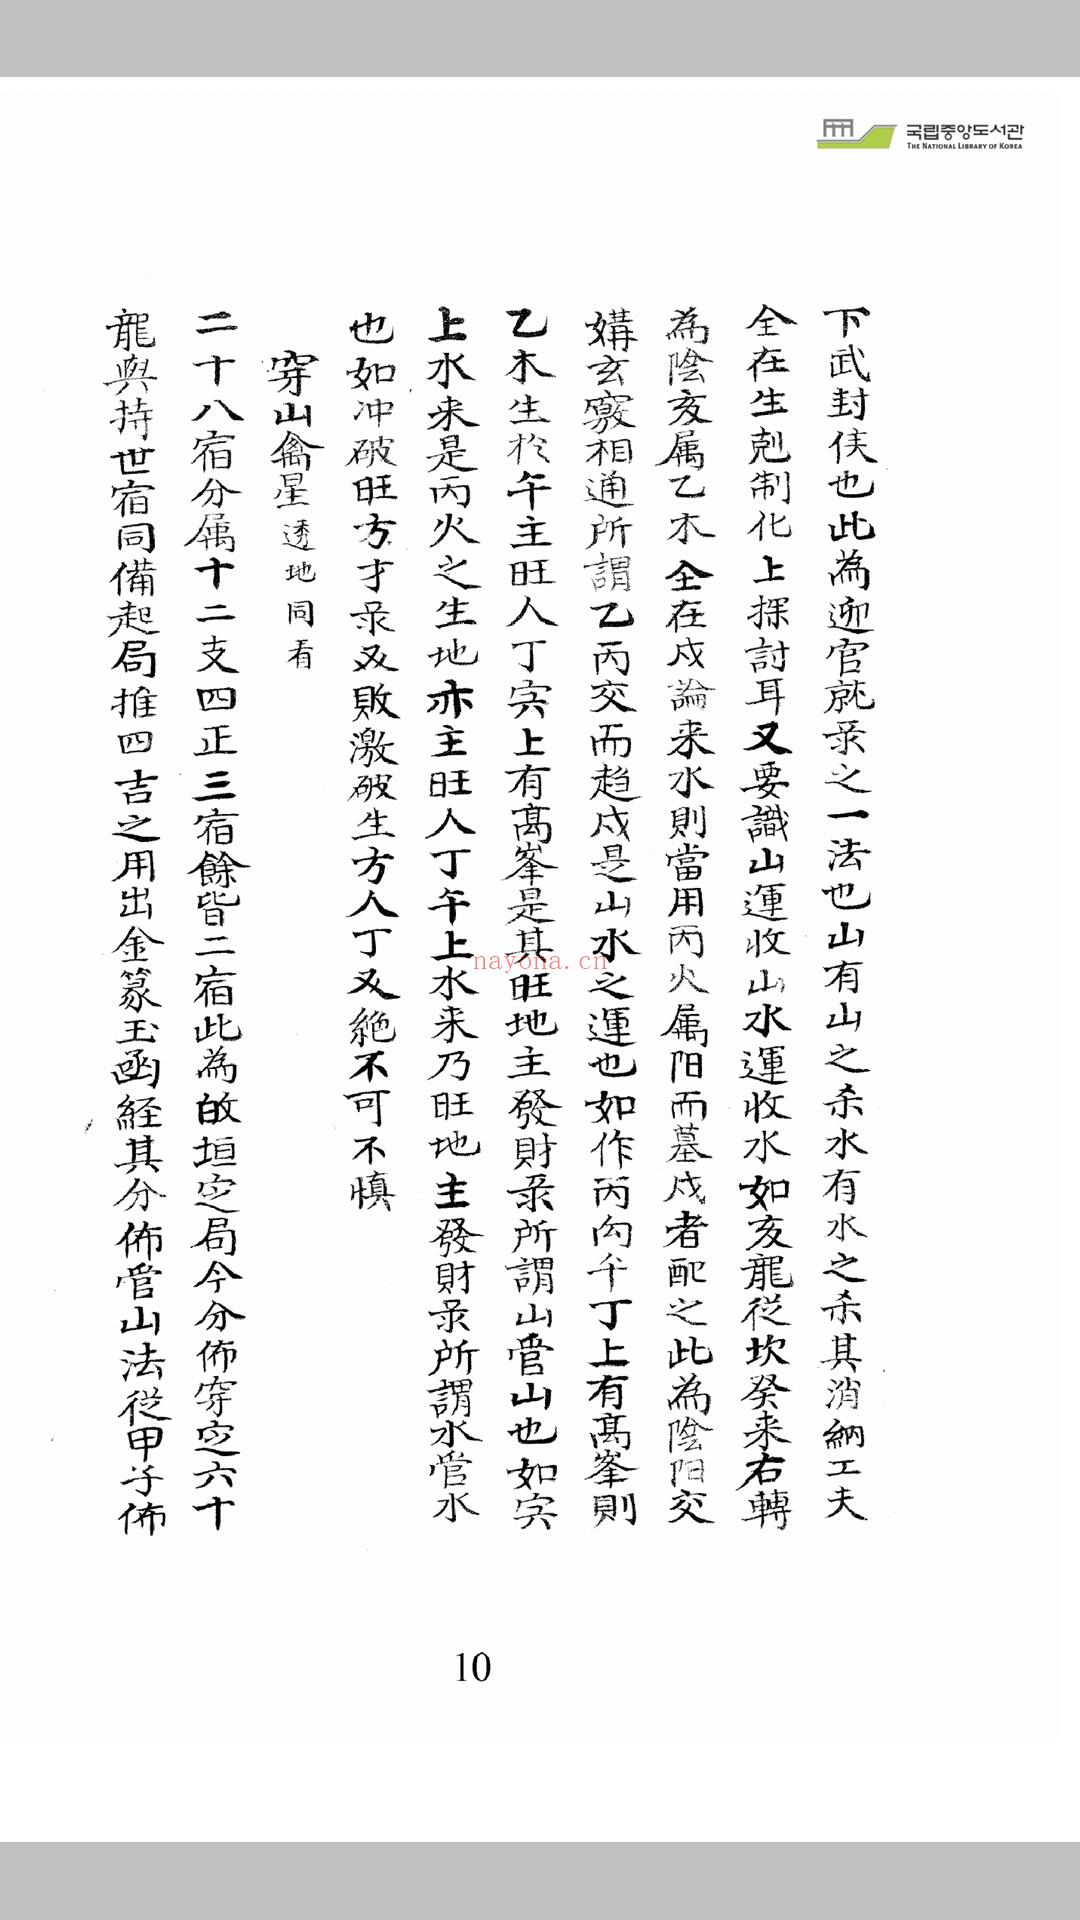 국립중앙도서관
THE NATIONAL LIBRARY OF KOREA
下武封侯也此為迎官就彔之一法也山有山之杀水有水之杀其消納工夫
全在生剋制化上探討耳又要識山運收山水運收水如亥龍從坎癸来右轉
為陰亥属乙木仝在戍論来水則當用丙火属阳而墓戍者配之此為陰阳交
媾玄竅相通所謂乙丙交而趋戍是山水之運也如作丙向午丁上有高峯則
乙木生於午主旺人丁寅上有高峯是其旺地主發財彔所謂山管山也如寅
上水来是丙火之生地亦主旺人丁午上水来乃旺地主發財彔所謂水管水
也如冲破旺方才彔又敗激破生方人丁又絶不可不慎
穿山禽星 透地同看
二十八宿分属十二支四正三宿餘皆二宿此為故垣定局今分佈穿定六十
龍與持世宿同備起局推四吉之用出金篆玉函経其分佈管山法從甲子佈
nayona.cn
10